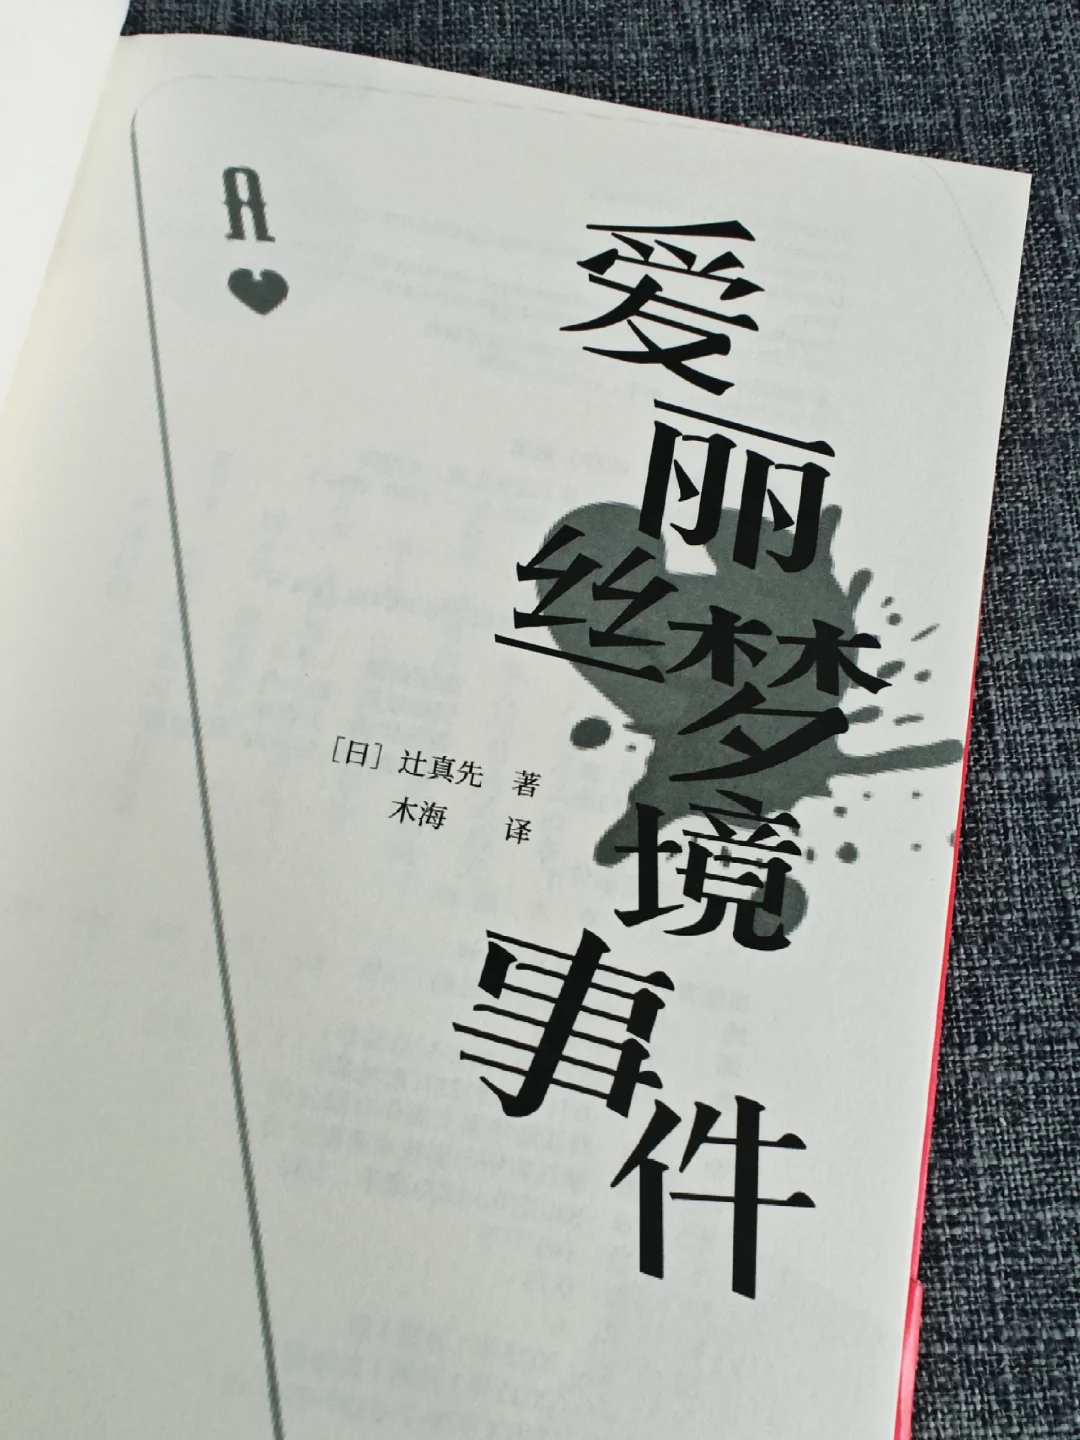 A
爱丽丝梦境事件
[日] 辻真先 著
木海 译